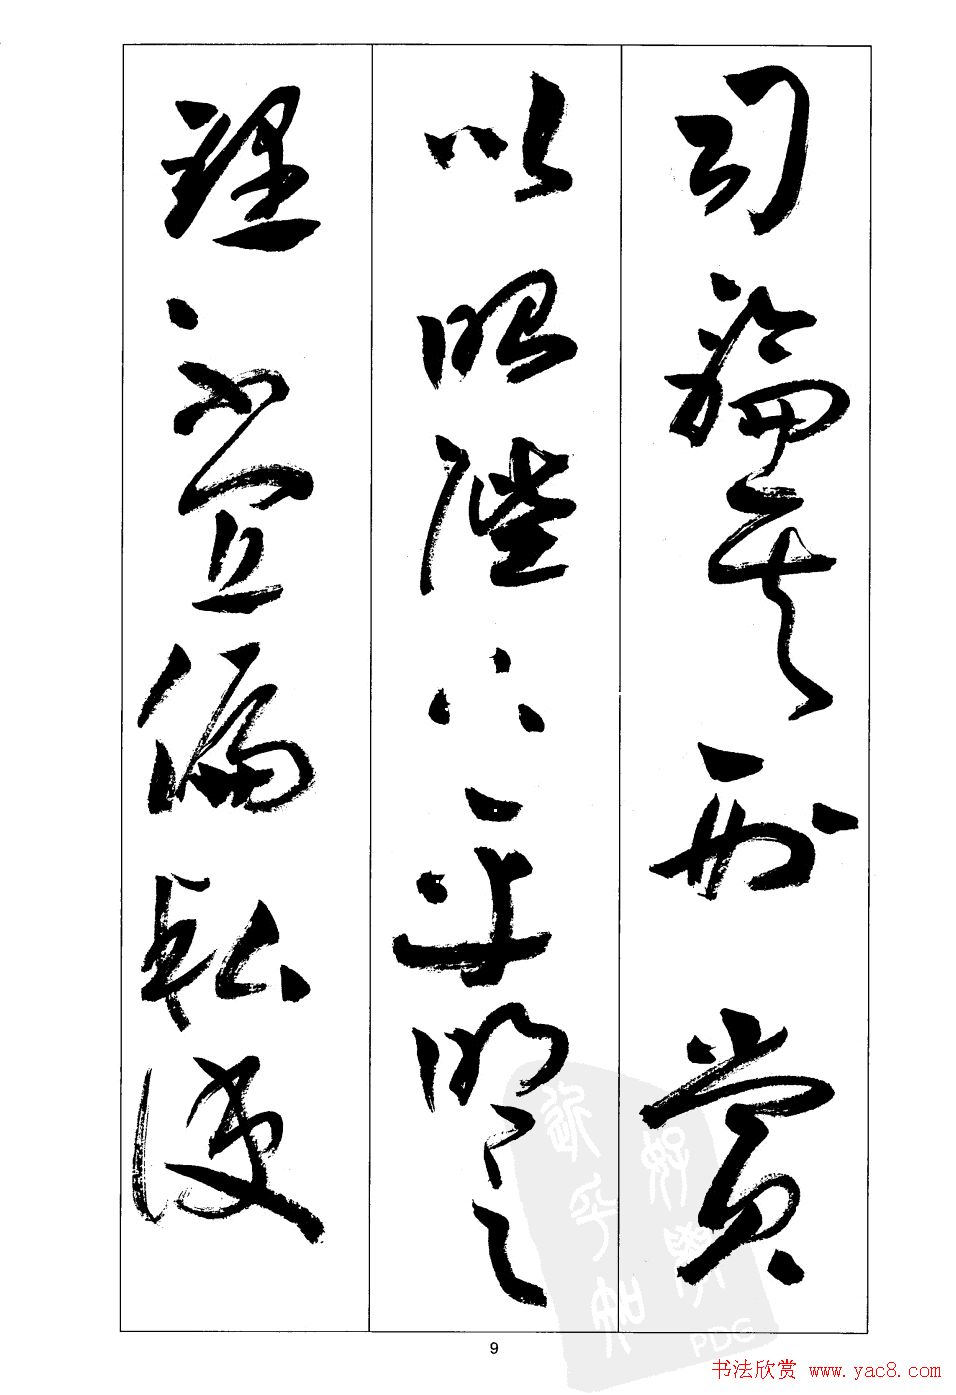 司論其刑賞
以昭陛下平明之
理不宜偏私使
9
PDG
书法欣赏 www.yac8.com